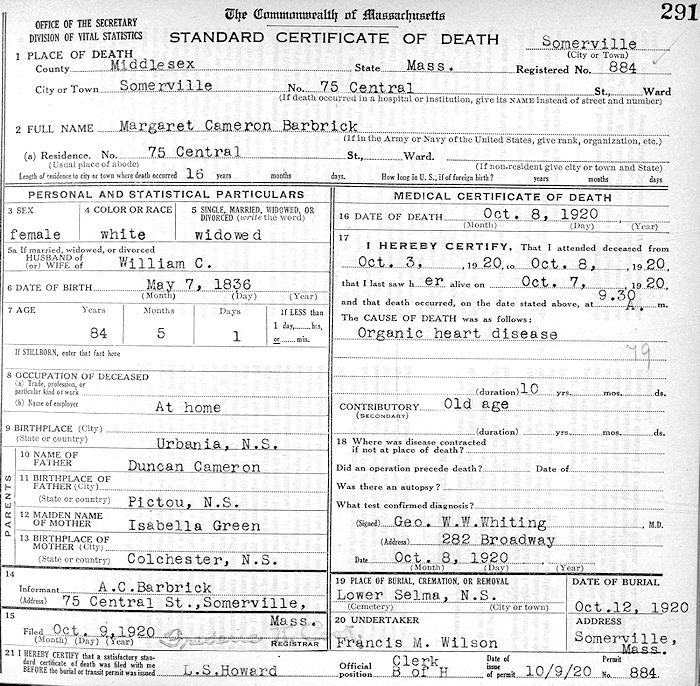 The Commonwealth of Massachusetts
291
OFFICE OF THE SECRETARY
DIVISION OF VITAL STATISTICS
STANDARD CERTIFICATE OF DEATH
Somerville
(City or Town)
1 PLACE OF DEATH
County Middlesex State Mass. Registered No. 884
City or Town Somerville No. 75 Central St., Ward
(If death occurred in a hospital or institution, give its NAME instead of street and number)
2 FULL NAME Margaret Cameron Barbrick
(If in the Army or Navy of the United States, give rank, organization, etc.)
(a) Residence. No. 75 Central St., Ward.
(Usual place of abode) (If non-resident give city or town and State)
Length of residence to city or town where death occurred 16 years months days. How long in U. S., if of foreign birth? years months days.
PERSONAL AND STATISTICAL PARTICULARS
3 SEX
female
4 COLOR OR RACE
white
5 SINGLE, MARRIED, WIDOWED, OR
DIVORCED (write the word)
widowed
5a If married, widowed, or divorced
HUSBAND of
(or) WIFE of William C.
6 DATE OF BIRTH May 7, 1836
(Month) (Day) (Year)
7 AGE Years Months Days If LESS than
84 5 1 1 day, hrs,
or min.
If STILLBORN, enter that fact here
8 OCCUPATION OF DECEASED
(a) Trade, profession, or
particular kind or work
(b) Name of employer At home
9 BIRTHPLACE (City)
(State or country) Urbania, N.S.
PARENTS
10 NAME OF
FATHER Duncan Cameron
11 BIRTHPLACE OF
FATHER (City)
(State or country) Pictou, N.S.
12 MAIDEN NAME
OF MOTHER Isabella Green
13 BIRTHPLACE OF
MOTHER (City)
(State or country) Colchester, N.S.
14
Informant A.C.Barbrick
(Address) 75 Central St.,Somerville,
Mass.
15
Filed Oct. 9,1920
(Month) (Day) (Year) REGISTRAR
MEDICAL CERTIFICATE OF DEATH
16 DATE OF DEATH Oct. 8, 1920
(Month) (Day) (Year)
17
I HEREBY CERTIFY, That I attended deceased from
Oct. 3, , 19 20, to Oct. 8, , 19 20,
that I last saw h er alive on Oct. 7, , 19 20,
9.30
and that death occurred, on the date stated above, at A. m.
The CAUSE OF DEATH was as follows:
Organic heart disease
79
(duration) 10 yrs. mos. ds.
CONTRIBUTORY Old age
(SECONDARY)
(duration) yrs. mos. ds.
18 Where was disease contracted
if not at place of death?
Did an operation precede death? Date of
Was there an autopsy?
What test confirmed diagnosis?
(Signed) Geo. W.W.Whiting M.D.
(Address) 282 Broadway
Date Oct. 8, 1920
(Month) (Day) (Year)
19 PLACE OF BURIAL, CREMATION, OR REMOVAL
Lower Selma, N.S.
(Cemetery) (City or town)
DATE OF BURIAL
Oct.12, 1920
20 UNDERTAKER
Francis M. Wilson
ADDRESS
Somerville,
Mass.
21 I HEREBY CERTIFY that a satisfactory stan-
dard certificate of death was filed with me
BEFORE the burial or transit permit was issued L.S.Howard
Official
position
Clerk
B of H
Date of
issue
of permit 10/9/20
Permit
No. 884.